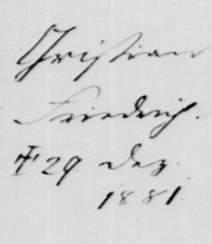 Christian
Friedrich.
✝ 29 Dez.
1881